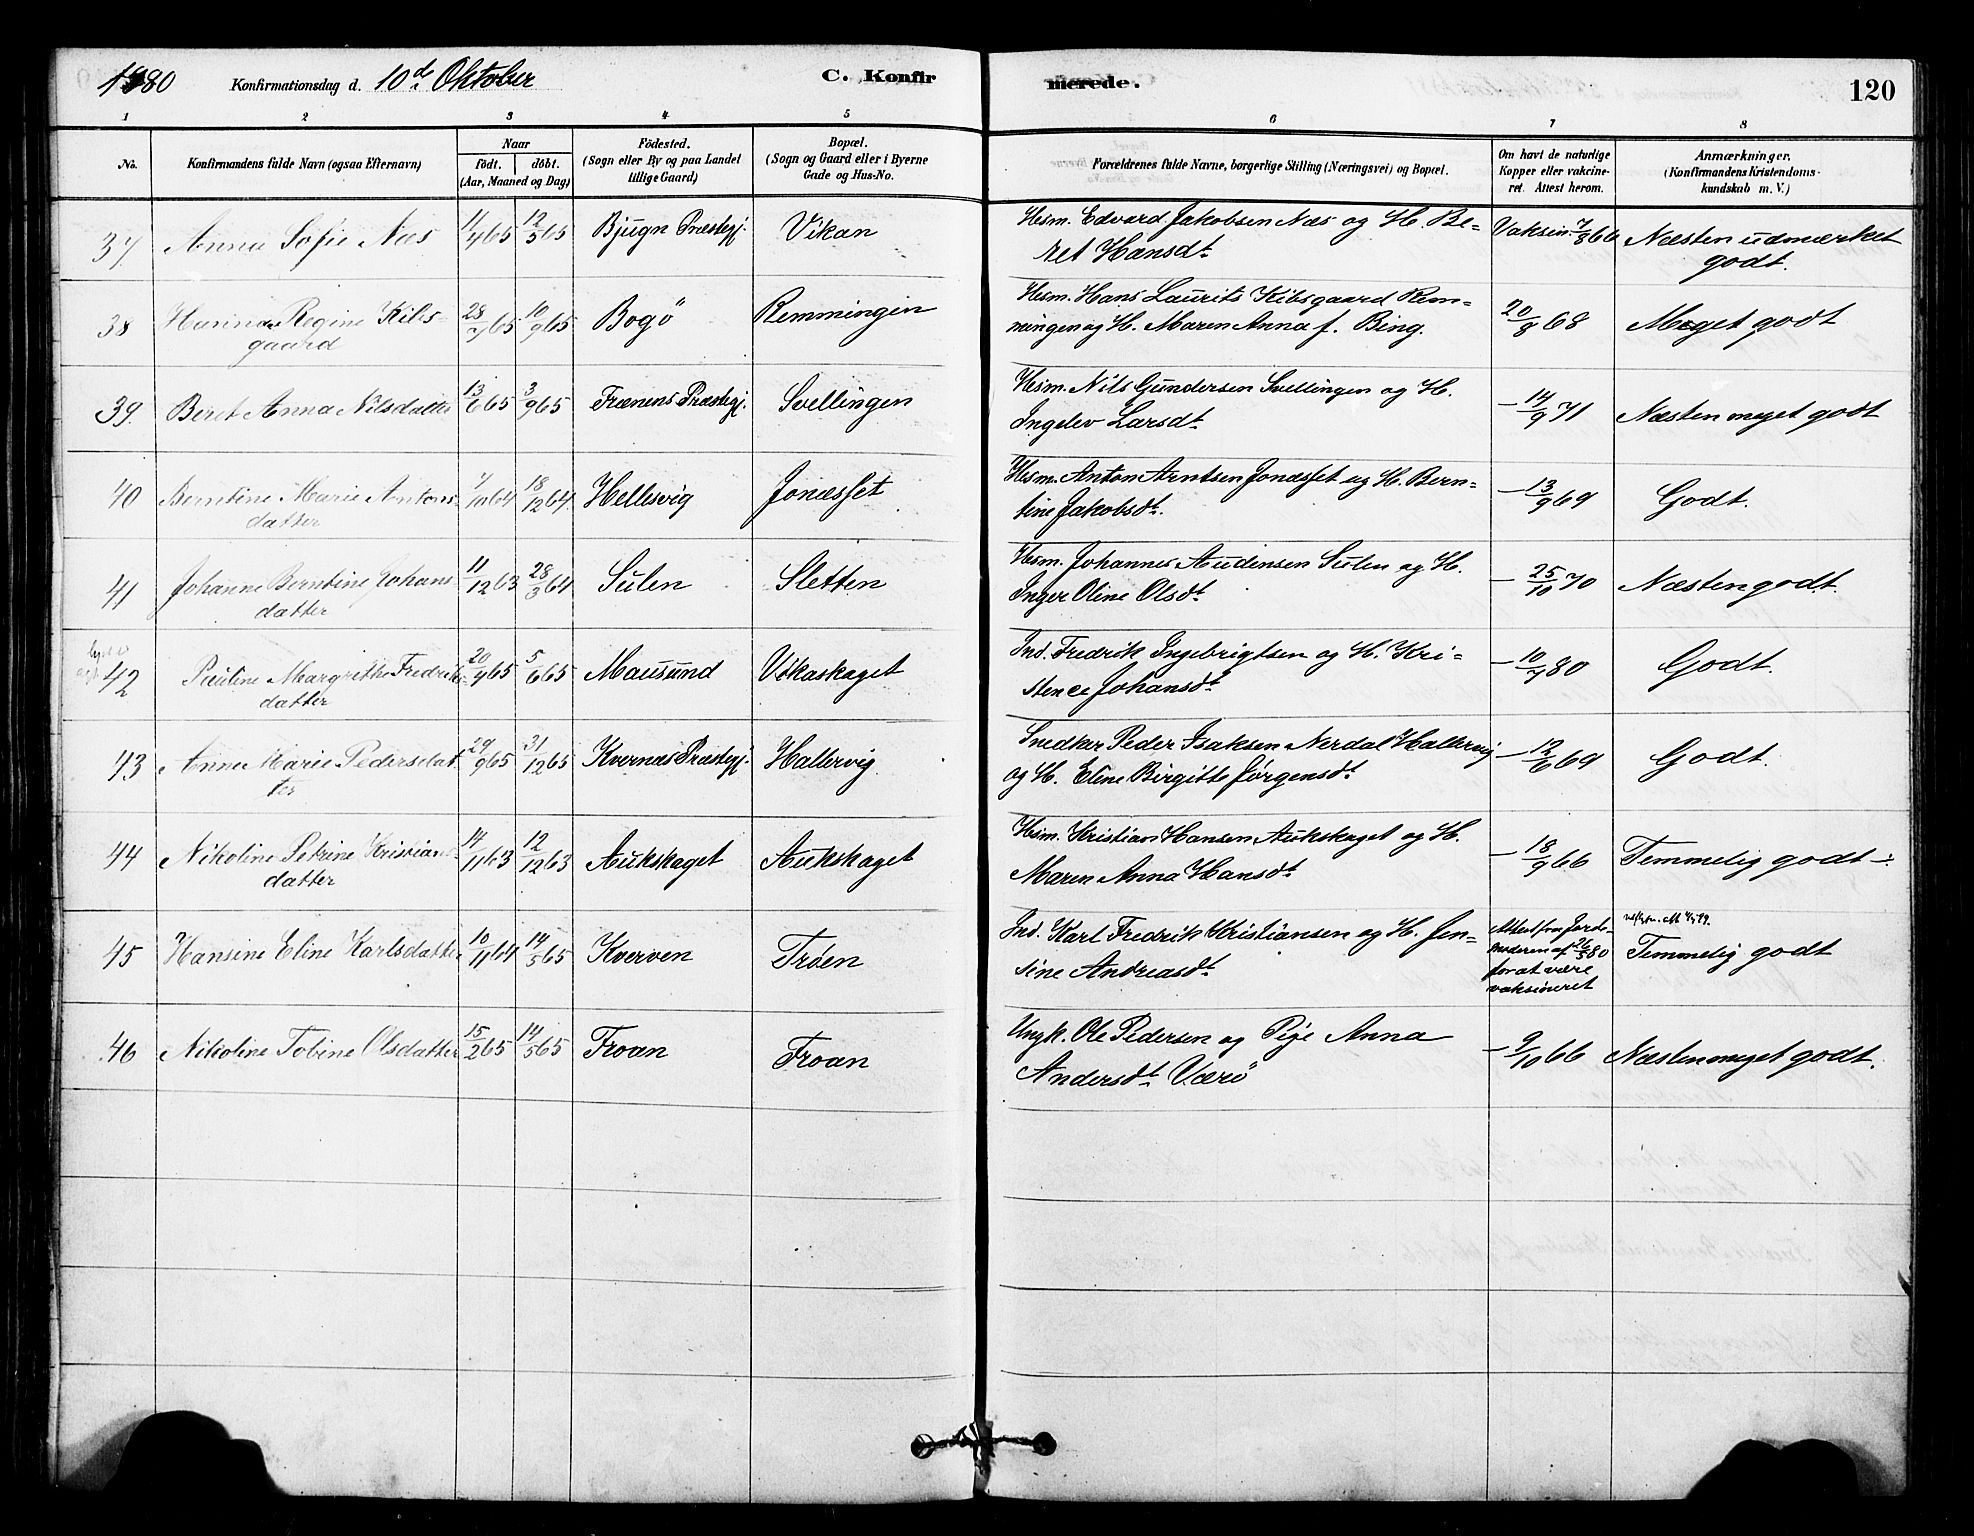 1880 Konfirmationsdag d. 10de Oktober C. Konfirmerede. 120
1 2 3 4 5 6 7 8
No. Konfirmandens fulde Navn (ogsaa Efternavn) Naar födt. döbt. (Aar, Maaned og Dag) Födested. (Sogn eller By og paa Landet tillige Gaard) Bopæl. (Sogn og Gaard eller i Byerne Gade og Hus-No. Forældrenes fulde Navne, borgerlige Stilling (Næringsvei) og Bopæl. Om havt de naturlige Kopper eller vakcineret. Attest herom. Anmærkninger. (Konfirmandens Kristendomskundskab m. V.)
37 Anna Sofie Næs 11/4 65 12/5 65 Bjugn Præstegj. Vikan Hsm. Edvard Jakobsen Næs og H. Be-
ret Hansdt. Vaksin. 7/8 66 Næsten udmærket
godt.
38 Regine Kibs-
gaard 28/7 65 10/9 65 Bogö Remmingen Hsm. Hans Laurits Kibsgaard Rem-
mingen og H. Maren Anna f. Bing. 20/8 68 Meget godt
39 Beret Anna Nilsdatter 13/6 65 3/9 65 Frænens Præstegj. Svellingen Hsm. Nils Gundersen Svellingen og H.
Ingelev Larsdt. — 14/9 71 Næsten meget godt
40 Berntine Marie Antons-
datter 7/10 64 18/12 64 Hellesvig Jonæsset Hsm. Anton Arntsen Jonæsset og H. Bern-
tine Jakobsdt. — 13/9 69 Godt.
41 Johanne Berntine Johans
datter 11/12 63 28/3 64 Sulen Sletten Hsm. Johannes Audensen Sulen og H.
Inger Oline Olsdt. — 25/10 70 Næsten godt.
42 Pauline Margrethe Fredriks-
datter 20/4 65 5/6 65 Mausund Vikaskaget Ind. Fredrik Ingebrigtsen og H. Kri-
stence Johansdt. — 10/7 80 Godt.
43 Anne Marie Pedersdat
ter 29/9 65 31/12 65 Kvernæs Præstegj. Hallervig Snedker Peder Isaksen Nerdal Hallervig
og H. Eline Birgitte Jörgensdt. — 12/6 69 Godt.
44 Nikoline Petrine Kristians
datter 14/11 63 12/12 63 Aukskaget Aukskaget Hsm. Kristian Hansen Aukskaget og H.
Maren Anna Hansdt. — 18/9 66 Temmelig godt -:
45 Hansine Eline Karlsdatter 10/11 64 14/5 65 Kverven Tröen Ind. Karl Fredrik Kristiansen og H. Jen-
sine Andreasdt. Attest fra Jorde-
moderen af 26/5 80
for at være
vaksineret Temmelig godt
46 Nikoline Tobine Olsdatter 15/2 65 14/5 65 Froan Froan Ungk. Ole Pedersen og Pige Anna
Andersdt. Værö — 9/10 66 Næsten meget godt.